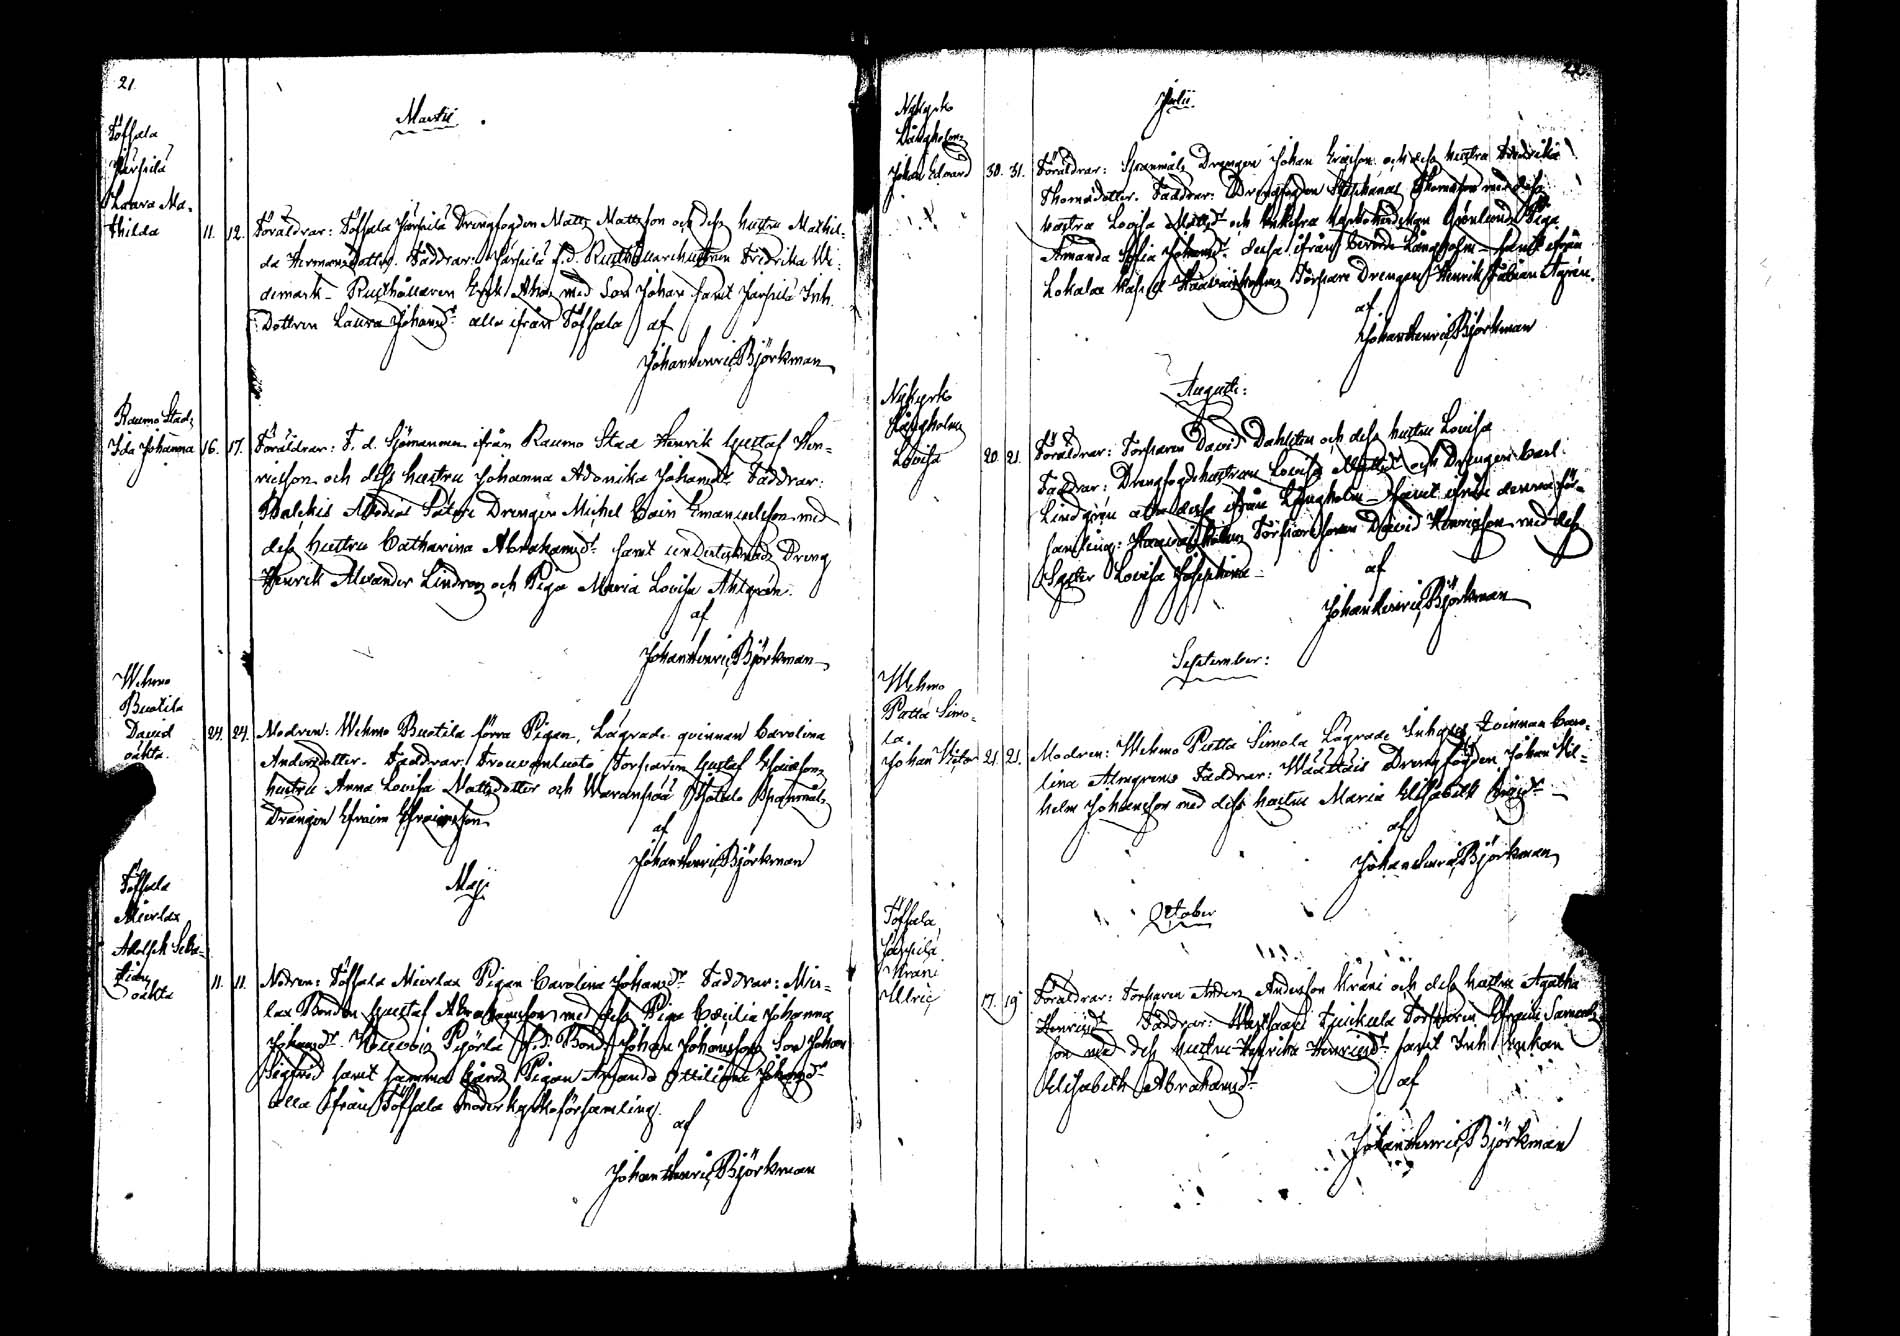 21.
Martii.
Töfsala
Järppilä
Laura Ma-
thilda 11. 12. Föräldrar: Töfsala Järppilä Drengfogden Matts Mattsson och dess hustru Mathil-
da Hermansdotter. Faddrar: Järppilä f.d. Rusthållarehustrun Fredrika Wi-
demark. Rusthållaren Erik Aho med Son Johan samt Järppilä Inh.
Dottren Laura Johansdr alla ifrån Töfsala af
Johan Henric Björkman
Raumo Stad,
Ida Johanna 16. 17. Föräldrar: F. d. Sjömannen ifrån Raumo Stad Henrik Gustaf Hen-
ricsson och dess hustru Johanna Adamika Johansdr. Faddrar:
Säteri Drengen Michel Cain Emanuelsson med
dess hustru Catharina Abrahamsdr samt Dreng
Henrik Alexander Lindroos och Piga Maria Lovisa Ahlgrén.
af
Johan Henric Björkman
Wehmo
Buotila
David
oäkta. 24. 24. Modren: Wehmo Buotila förra Pigan, Lägrade qvinnan Carolina
Andersdotter. Faddrar: Torparen Gustaf
hustru Anna Lovisa Mattsdotter och Spanmåls
Drängen Efraim Efraimsson
af
Johan Henric Björkman
Maji
Töfsala
Mierlax
Adolph Seba-
stian
oäkta 11. 11. Modren: Töfsala Mierlax Pigan Carolina Johansdr Faddrar: Mier-
lax Bonden Gustaf Abrahamsson med dess Piga Cæcilia Johanna
Johansdr. f.d. Bond. Johan Johanssons Son Johan
Sigfrid samt samma Gårds Pigan Amanda Ottiliana Johansdr
alla ifrån Töfsala moderkyrkoförsamling.
af
Johan Henric Björkman
22
Julii.
Nykyrko
Långholms
Johan Edvard 30. 31. Föräldrar: Spanmåls Drengen Johan Ericsson och dess hustru Fredrika
Thomasdotter. Faddrar: Drengfogden Stephanus Thomasson med dess
hustru Lovisa Mattsdr och Grönlund, Piga
Amanda Sofia Johansdr dessa ifrån berörde Långholm samt ifrån
Lokalax Kapell Torpare Drengen Henrik Fabian Agrén.
af
Johan Henric Björkman
Augusti:
Nykyrko
Långholms
Lovisa 20. 21. Föräldrar: Torparen David Dahlsten och dess hustru Lovisa
Faddrar: Drengfogdehustrun Lovisa Mattsdr och Drengen Carl
Lindgrén alla dessa ifrån Långholm samt ifrån denna för-
samling: Torparesonen David Henricsson med dess
Syster Lovisa Josephina
af
Johan Henric Björkman
September:
Wehmo
Putta Simo-
la
Johan Victor 21. 21. Modren: Wehmo Putta Simola Lägrade Inhyses Qvinnan Caro-
lina Almgren. Faddrar: Drengfogden Johan Vil-
helm Johansson med dess hustru Maria Elisabeth Ericsdr
af
Johan Henric Björkman
October
Töfsala
Järppilä
Kräni
Ulric, 17. 19. Föräldrar: Torparen Anders Andersson Kräni och dess hustru Agatha
Henricsdr Faddrar: Torparen Efraim Samuels-
son med dess hustru Henrika Henricsdr samt Inh. Enkan
Elisabeth Abrahamsdr
af
Johan Henric Björkman